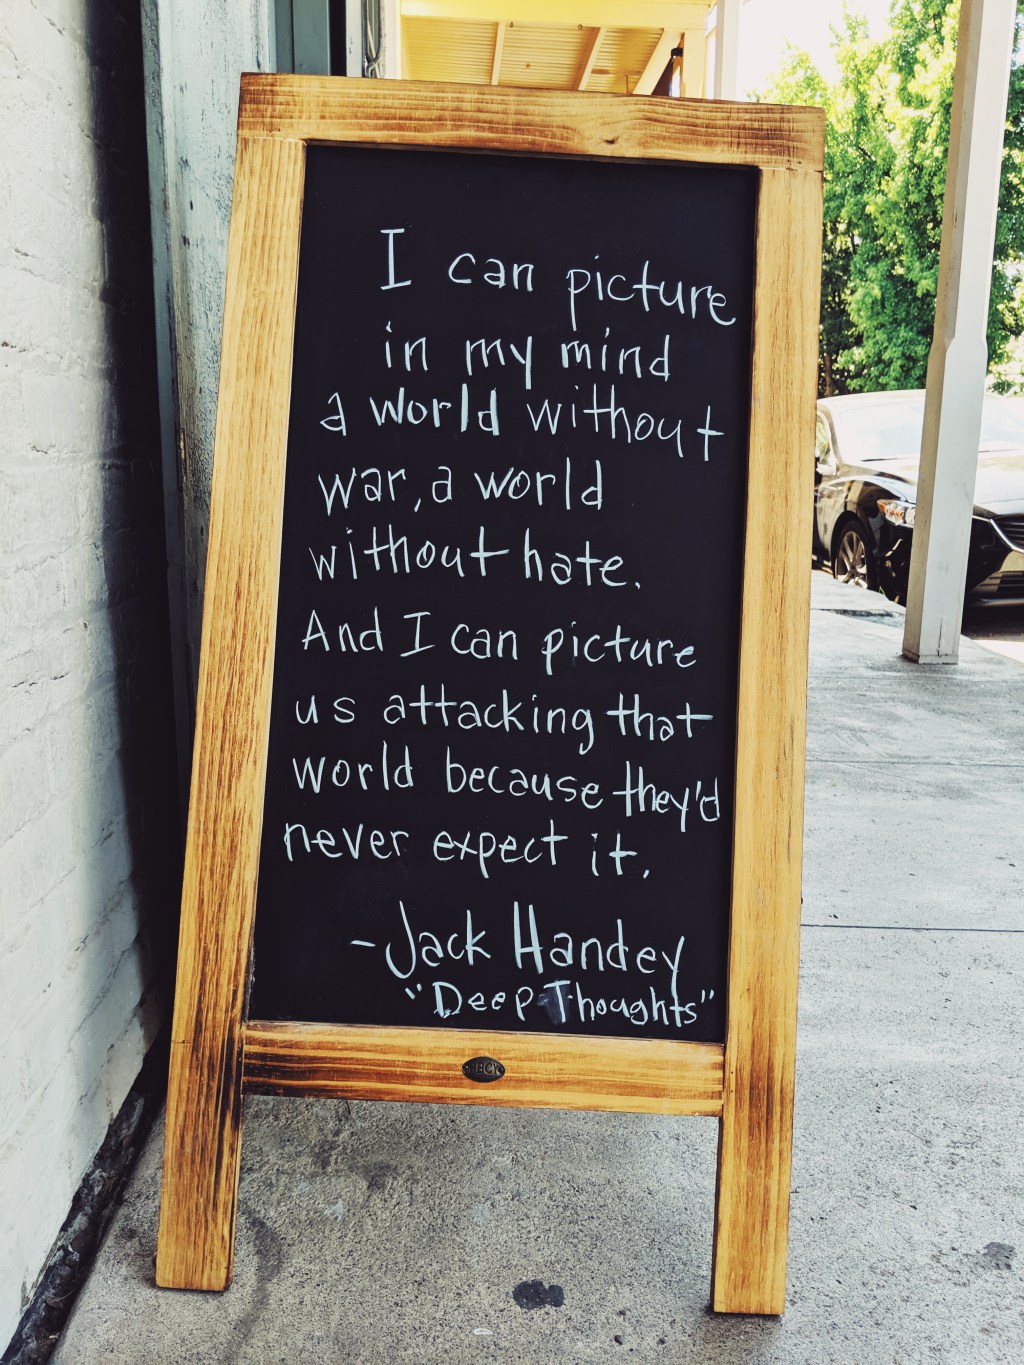 I can picture
in my mind
a world without
war, a world
without hate.
And I can picture
us attacking that
world because they'd
never expect it.
-Jack Handey
"Deep Thoughts"